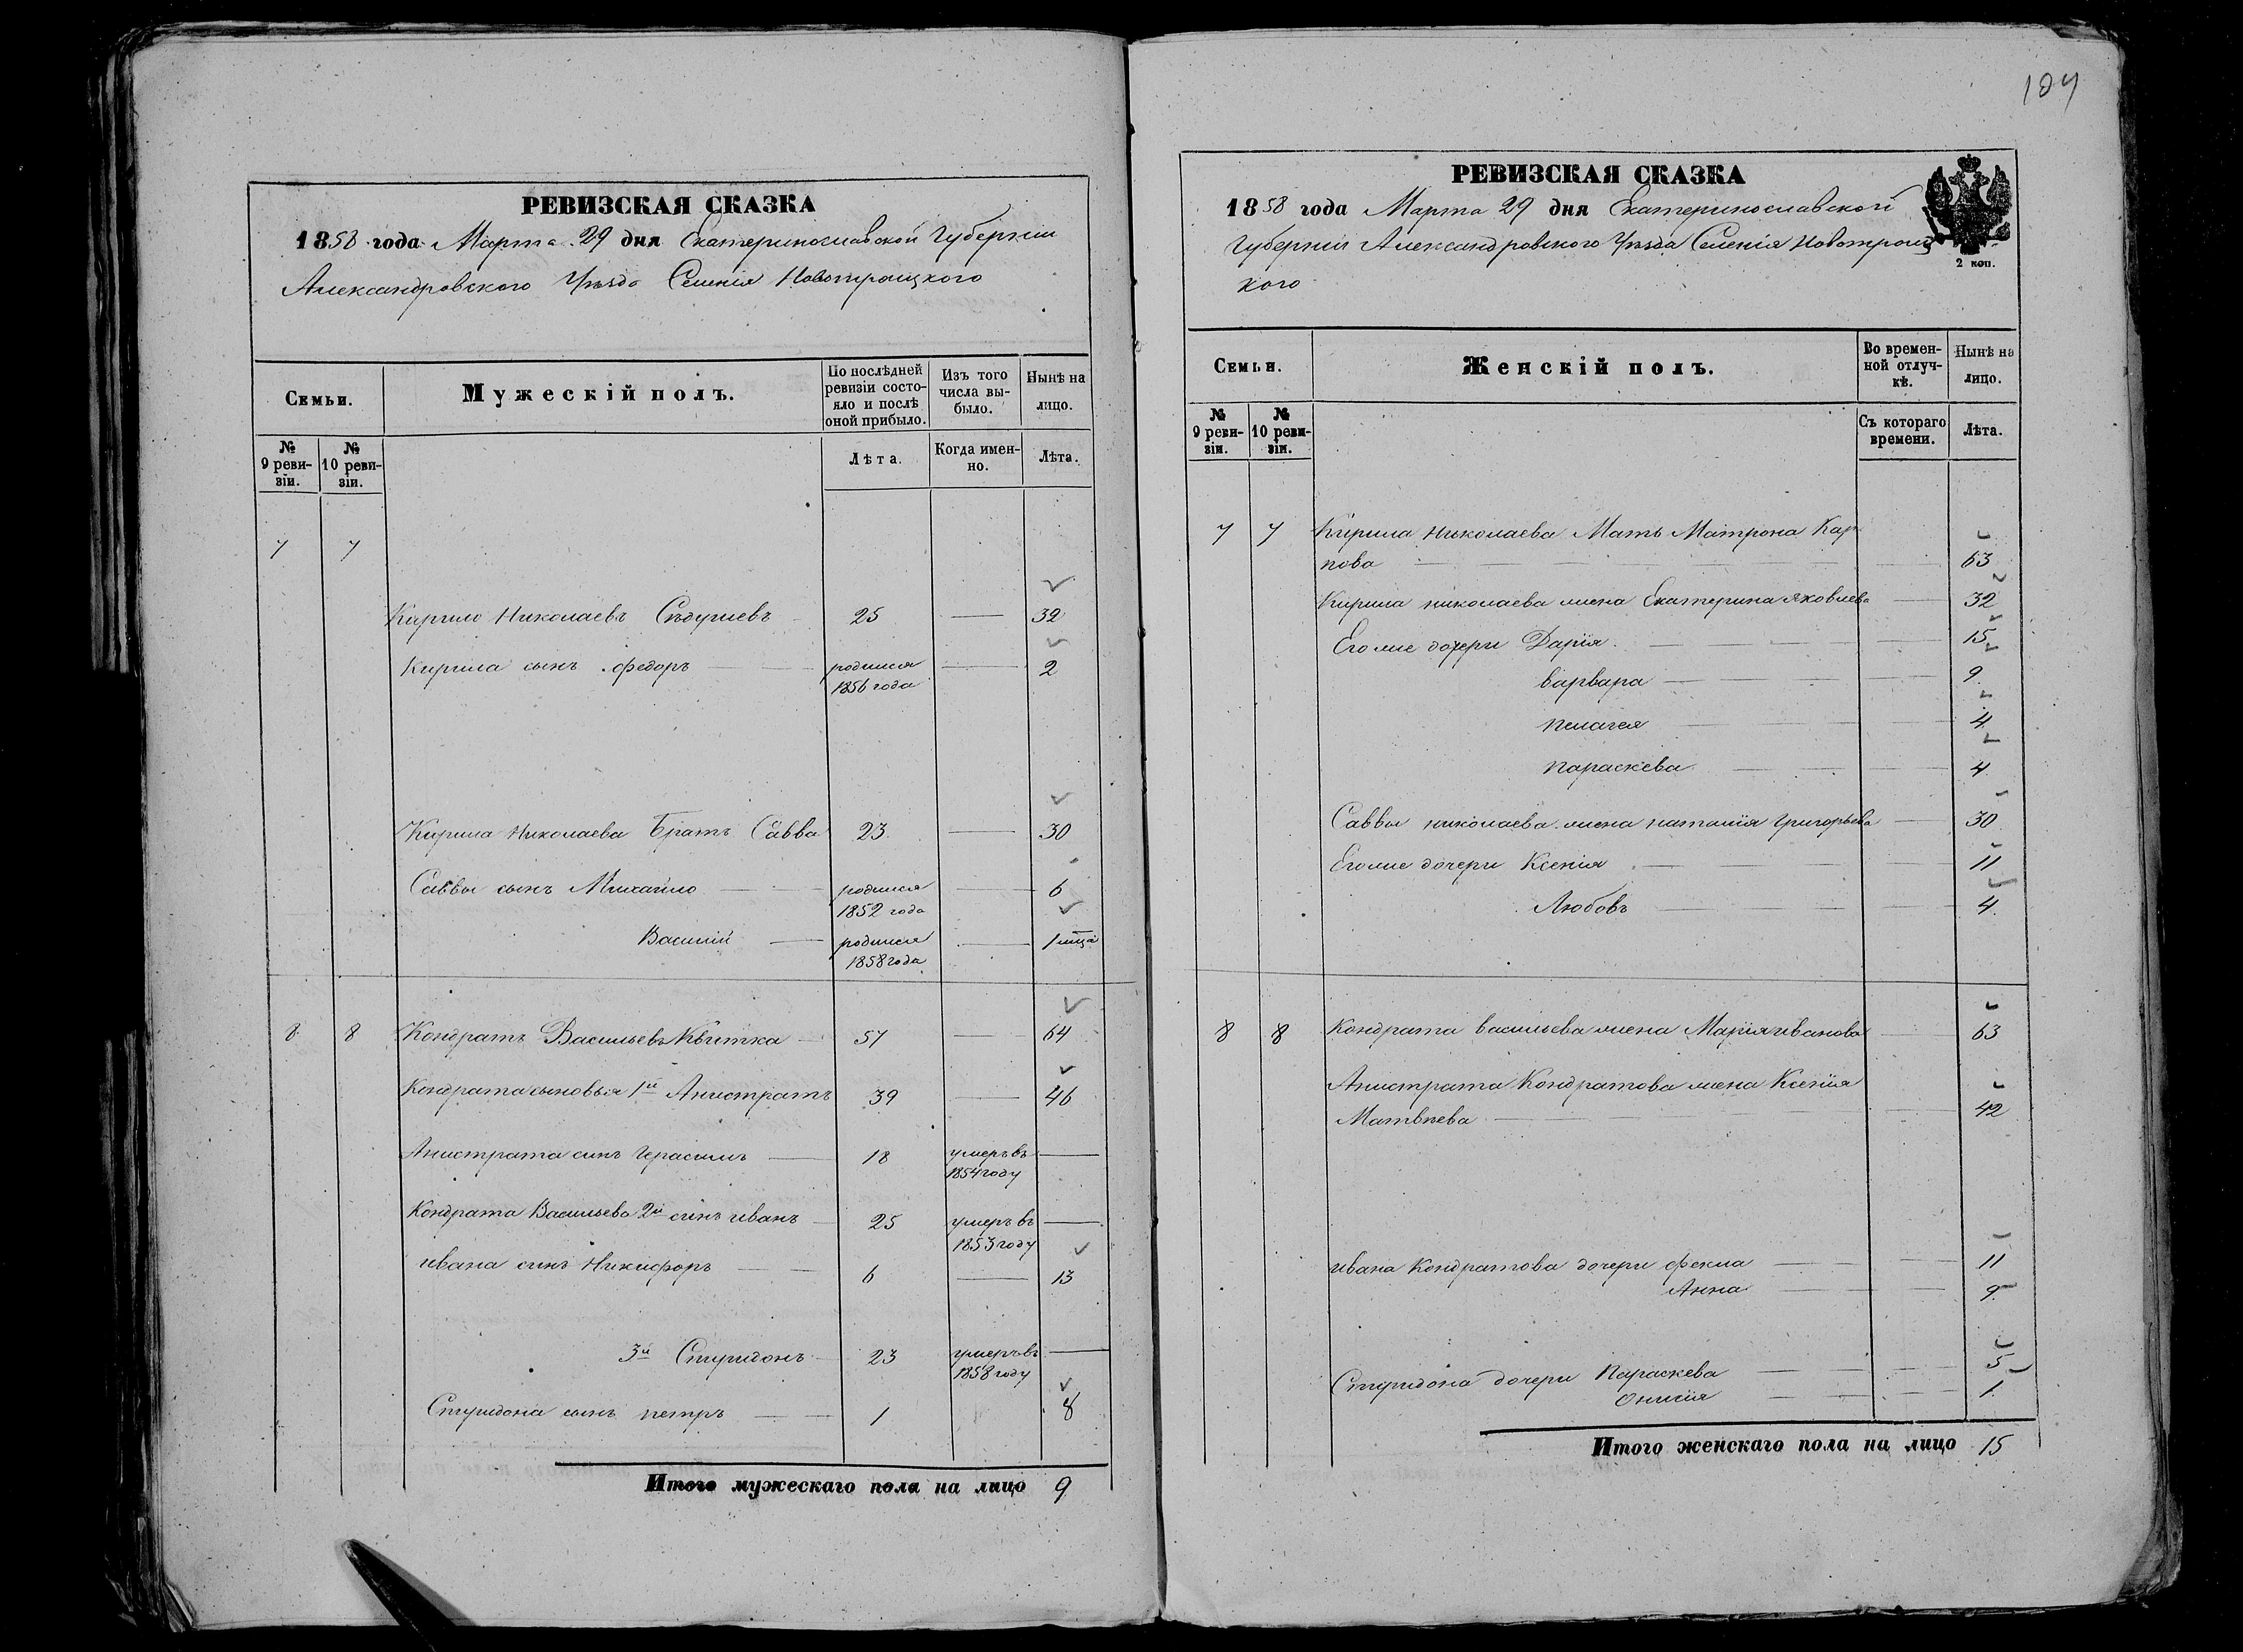 РЕВИЗСКАЯ СКАЗКА
1858 года Марта 29 дня Екатеринославской Губернии
Александровского Уѣзда Селенія Новотроицкого
Семьи.
Мужескій полъ.
По послѣдней ревизіи состояло и послѣ оной прибыло.
Изъ того числа выбыло.
Нынѣ на лицо.
№ 9 ревизіи.
№ 10 ревизіи.
Лѣта.
Когда именно.
Лѣта.
7 7
Кирило Николаевъ 25 32
Кирила сынъ федоръ родился 1856 года 2
Кирила Николаева Братъ Савва 23 30
Саввы сынъ Михайло родился 1852 года 6
Василій родился 1858 года 1 мца
8 8 Кондратъ Васильевъ Квитка 57 64
Кондрата сыновья 1й Анистратъ 39 46
Анистрата синъ Герасимъ 18 умеръ въ 1854 году
Кондрата Васильева 2й синъ иванъ 25 умеръ въ 1853 году
ивана синъ Никифоръ 6 13
3й Спиридонъ 23 умеръ въ 1858 году
Спиридона сынъ петръ 1 8
Итого мужескаго пола на лицо 9
РЕВИЗСКАЯ СКАЗКА
1858 года Марта 29 дня Екатеринославской
Губерніи Александровского Уѣзда Селенія Новотроиц
кого
2 коп.
Семьи.
Женскій полъ.
Во временной отлучкѣ.
Нынѣ на лицо.
№ 9 ревизіи.
№ 10 ревизіи.
Съ котораго времени.
Лѣта.
7 7 Кирила Николаева Мать Матрона Кар
пова 63
Кирила николаева жена Екатерина Яковлева 32
Егоже дочери Дарія 15
варвара 9
пелагея 4
параскева 4
Саввы николаева жена наталія григорьева 30
Егоже дочери Ксенія 11
Любовъ 4
8 8 Кондрата васильева жена Марія иванова 63
Анистрата Кондратова жена Ксенія
Матвѣева 42
ивана Кондратова дочери фекла 11
Анна 9
Спиридона дочери Параскева 5
1
Итого женскаго пола на лицо 15